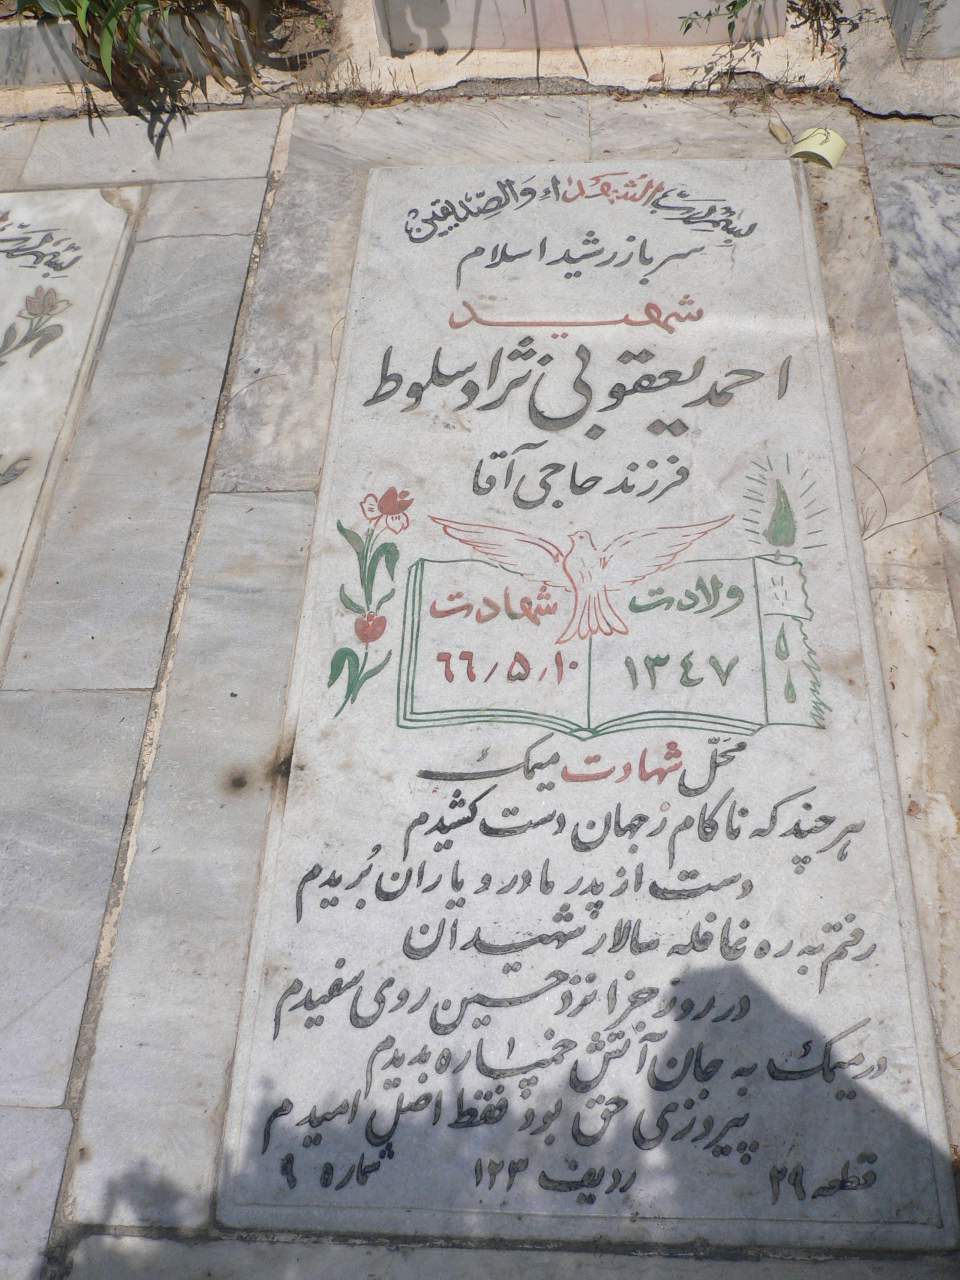 بسم رب الشهداء والصدیقین
سرباز رشید اسلام
شهید
احمد یعقوبی نژاد سلوط
فرزند حاجی آقا
ولادت شهادت
۱۳۴۷ ۶۶/۵/۱۰
محل شهادت میمک
هر چند که ناکام ز جهان دست کشیدم
دست از پدر مادر و یاران بُریدم
رفتم به ره غافله سالار شهیدان
در روز جزا نزد حسین روی سفیدم
در میمک به جان آتش خمپاره بدیدم
پیروزی حق بود فقط اصل امیدم
قطعه ۲۹ ردیف ۱۲۳ شماره ۹